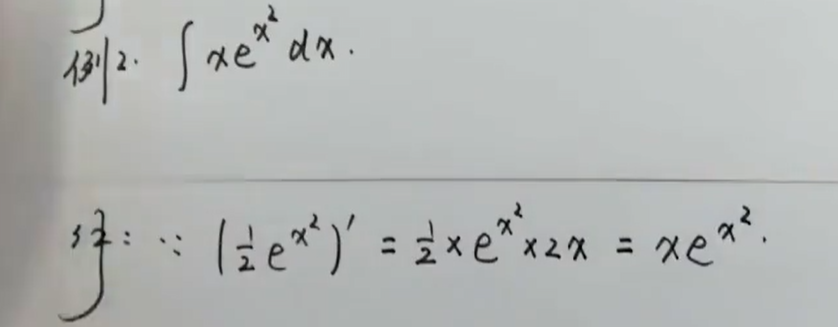 例2. ∫ xe^{x²} dx.
解: ∵ (½e^{x²})' = ½×e^{x²}×2x = xe^{x²}.